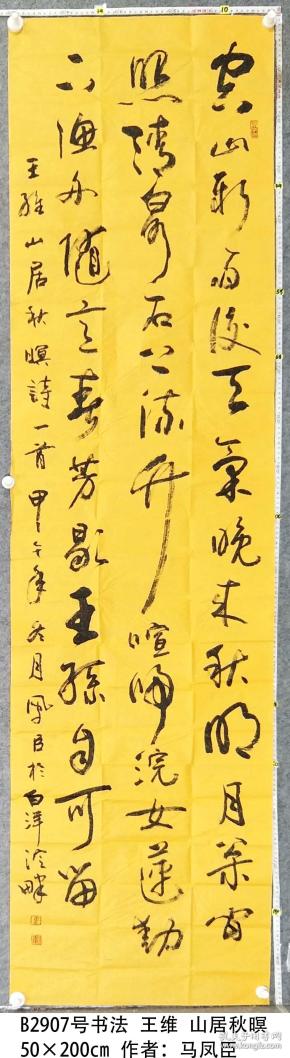 空山新雨後天氣晚来秋明月松間
照清泉石上流竹喧歸浣女蓮動
下漁舟随意春芳歇王孫自可留
王維山居秋暝詩一首甲午年冬月鳳臣於白洋淀畔
B2907号书法 王维 山居秋暝
50×200cm 作者：马凤臣